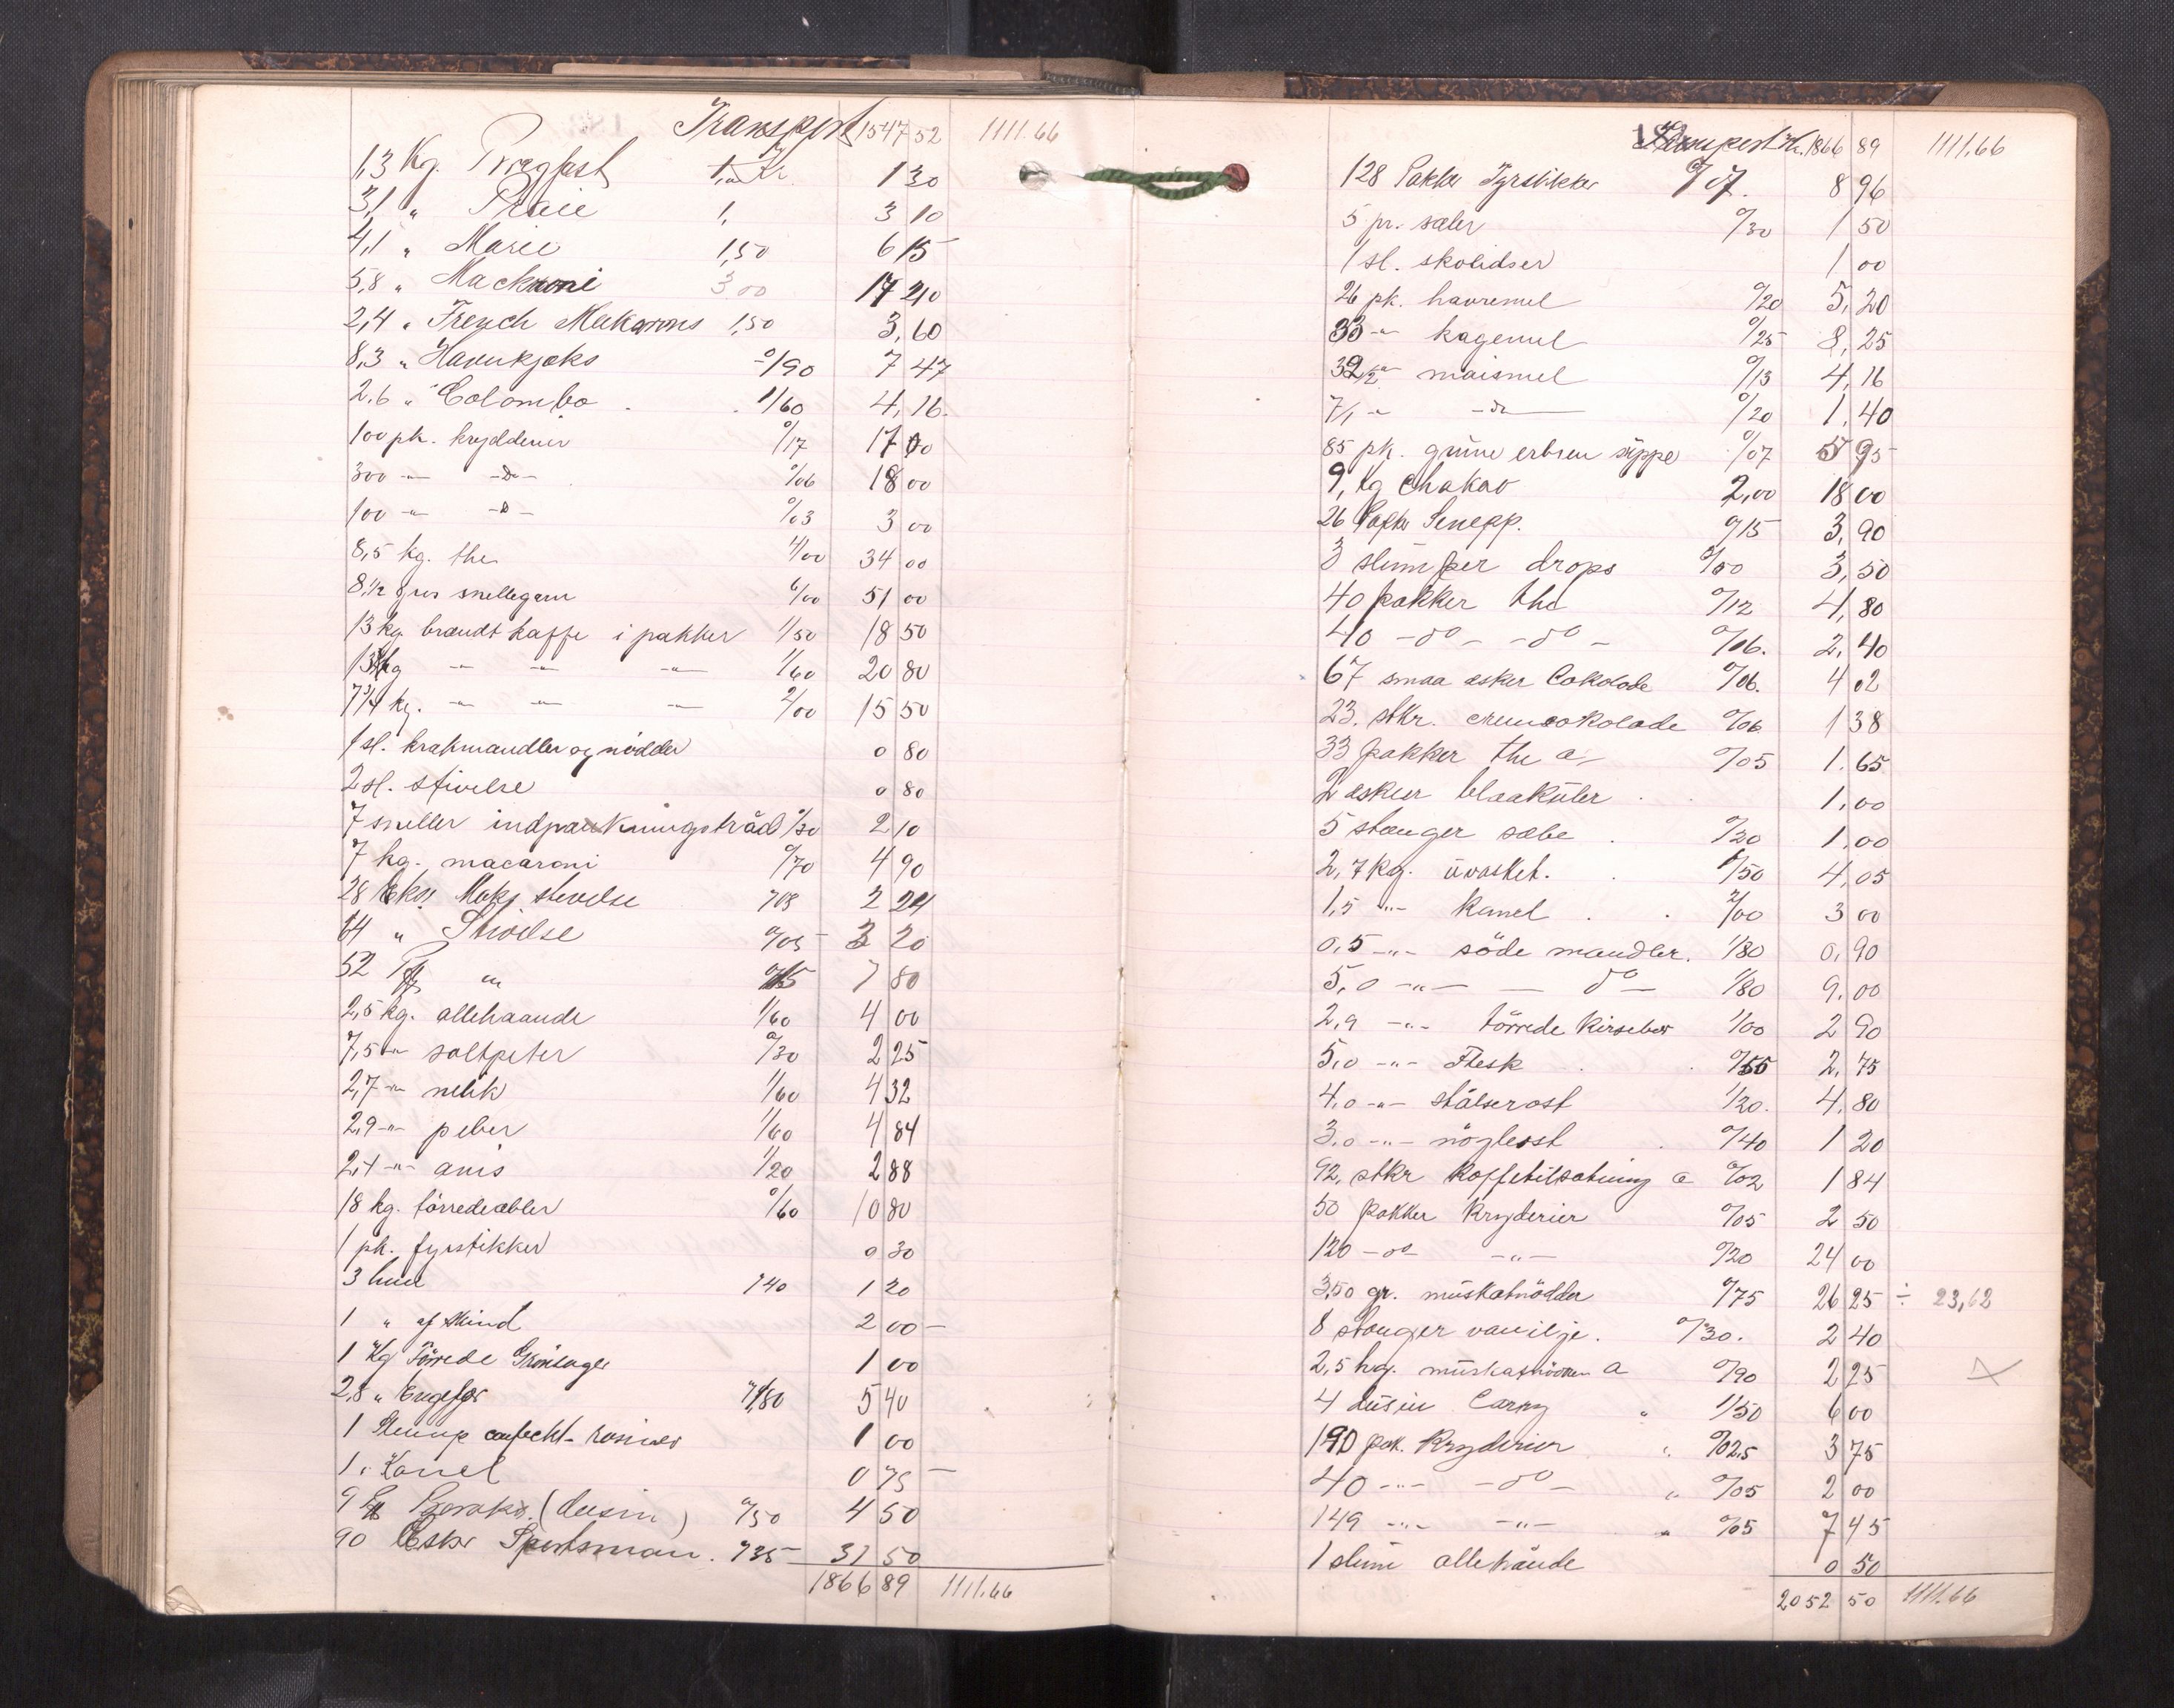 Transport 1547 52 1111.66
1,3 Kg. Prægfest 1,00 Kr. 1 30
3,1 " Prieie 1, 3 10
4,1 " Marie 1,50 6 15
5,8 " Mackroni 3 00 17 40
2,4 " French Makarons 1,50 3,60
8,3 " Havrekjæks 0/90 7 47
2,6 " Colombo 1/60 4,16
100 pk. krydderier 0/17 17 00
300 -"- -Do- 0/06 18 00
100 -"- -D- 0/03 3 00
8,5 kg. the 4/00 34 00
8 1/2 gros snellegarn 6/00 51 00
13 kg brændt kaffe i pakker 1/50 18 50
13 kg -"- -"- -"- 1/60 20 80
7 3/4 kg. -"- -"- -"- 2/00 15 50
1 sl. krakmandler og nødder 0 80
2 sl. stivelse 0 80
7 sneller indpakningstråd 0/30 2 10
7 kg. macaroni 0/70 4 90
28 Eker Maks stivelse 708 2 24
64 " Stivelse 0/05 3 20
52 " 0/15 7 80
2,5 kg. allehaande 1/60 4 00
7,5 -"- saltpeter 0/30 2 25
2,7 -"- nelik 1/60 4 32
2,9 -"- peber 1/60 4 84
2,4 -"- anis 1/20 2 88
18 kg. tørrede æbler 0/60 10 80
1 pk. fyrstikker 0 30
3 huer 740 1 20
1 " af skind 2 00 -
1 Kg Tørrede Grønsager 1 00
2,8 " Engefær 1/80 5 40
1 Slump confeckt-rosiner 1 00
1 " Kanel 0 75 -
9 (dusin) 0/50 4 50
90 Esker Sportsman. 735 31 50
1866 89 1111.66
Transport Kr. 1866 89 1111.66
128 Pakker Fyrstikker 0/07. 8 96
5 pr. sæler 0/30 1 50
1 sl. skolidser 1 00
26 pk. havremel 0/20 5,20
33 -"- kagemel 0/25 8,25
32 1/2 -"- maismel 0/13 4,16
7/1 -"- -do- 0/20 1,40
85 pk. grüne erbsen süppe 0/07 5 95
9, kg Chakao 2,00 18 00
26 Pakker Senepp. 0/15 3,90
3 slumper drops 0/50 3,50
40 pakker the 0/12 4,80
40 -do- -do- 0/06. 2,40
67 smaa esker Cokolade 0/06. 4 02
23. stkr. cremcokolade 0/06 1 38
33 pakker the a 0/05 1.65
2 esker blaakuler 1.00
5 stænger sæbe 0/20 1.00
2,7 kg. uvasket. 1/50 4,05
1,5 -"- Kanel 2/00 3 00
0,5 -"- söde mandler. 1/80 0,90
5,0 -"- - do - 1/80 9.00
2,9 -"- törrede Kirsebær 1/00 2 90
5,0 -"- Flesk 0/55 2,75
4,0 -"- stølserost 1/20. 4,80
3,0 -"- nøgleost 0/40 1 20
92, stkr Kaffetilsætning a 0/02 1 84
50 pakker Kryderier 0/05 2 50
120 -do- -"- 0/20 24 00
3,50 gr. müskatnödder 0/75 26 25 ÷ 23,62
8 stanger vanilje. 0/30. 2 40
2,5 hg. müskatnödder a 0/90 2 25
4 dusin Carry " 1/50 6 00
190 pak. Kryderier " 0/02,5 3 75
40 -"- -do- " 0/05 2 00
149 -"- -"- " 0/05 7 45
1 slum allehånde 0 50
2052 50 1111.66